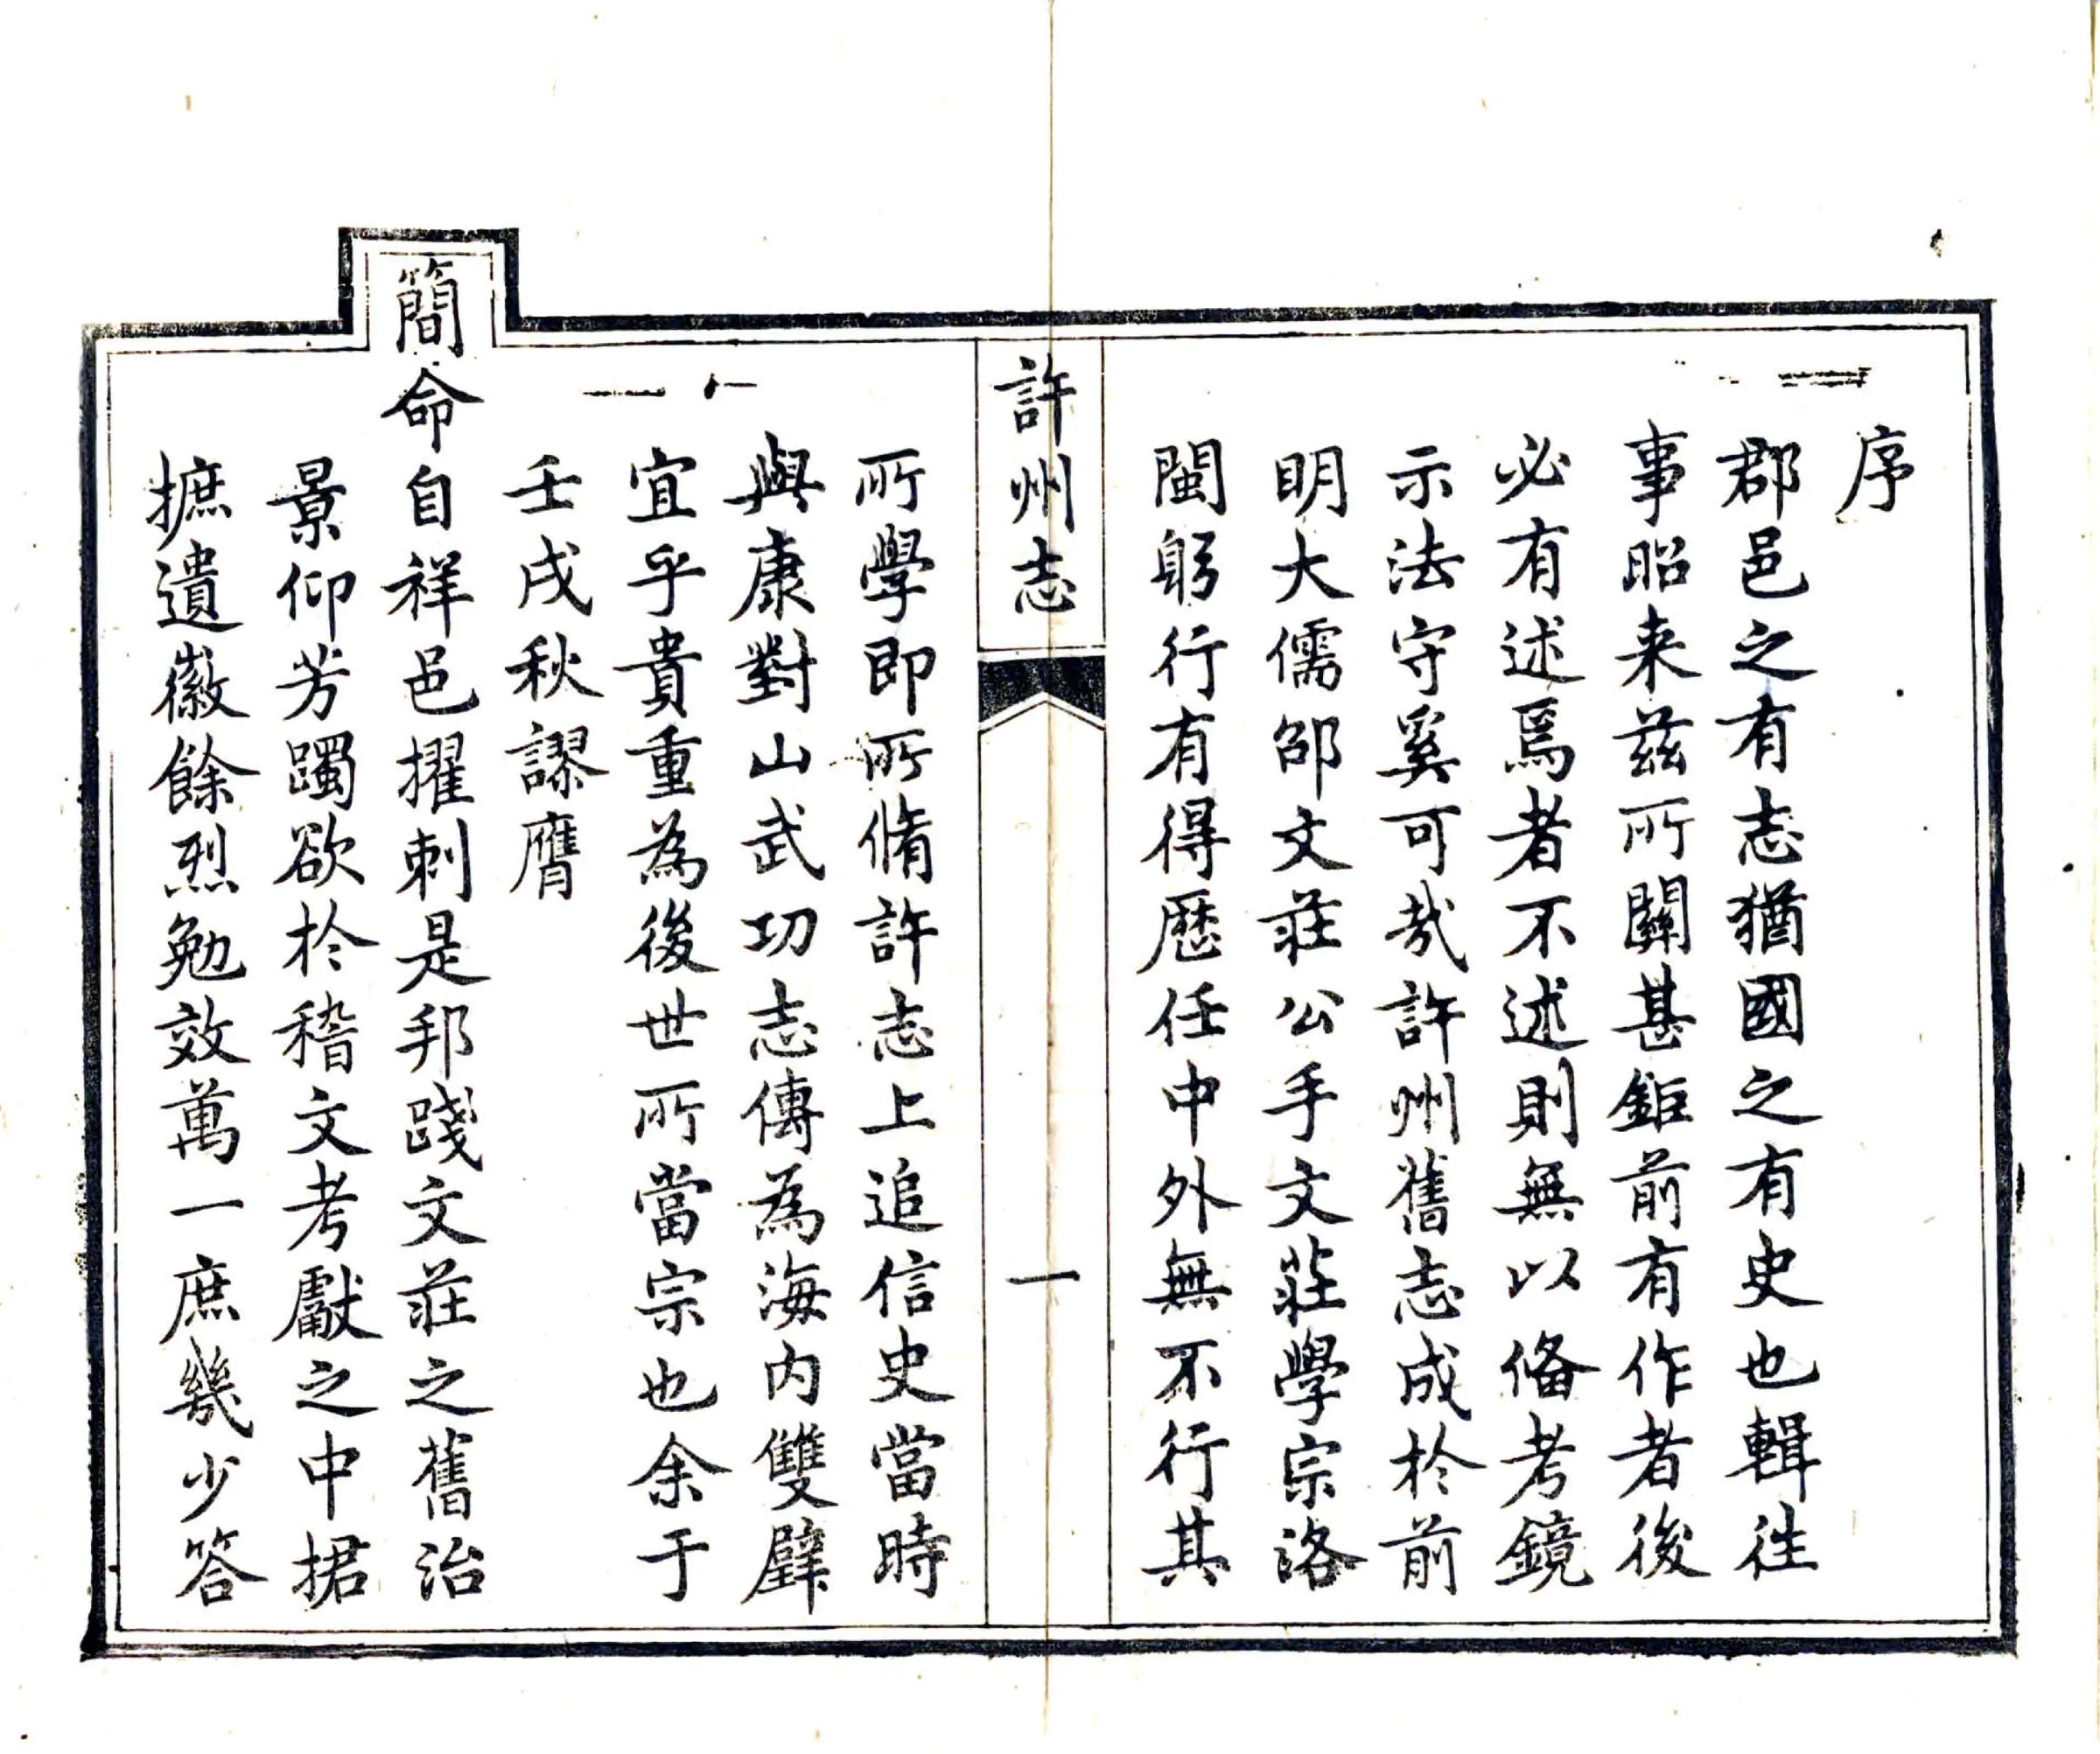 序
郡邑之有志猶國之有史也輯往
事昭来茲所關甚鉅前有作者後
必有述焉者不述則無以俻考鏡
示法守奚可哉許州舊志成於前
明大儒邵文莊公手文莊學宗洛
閩躬行有得歷任中外無不行其
許州志
一
所學即所脩許志上追信史當時
與康對山武功志傳為海内雙璧
宜乎貴重為後世所當宗也余于
壬戌秋謬膺
簡命自祥邑擢刺是邦踐文莊之舊治
景仰芳躅欲於稽文考獻之中捃
摭遺徽餘烈勉效萬一庶幾少答